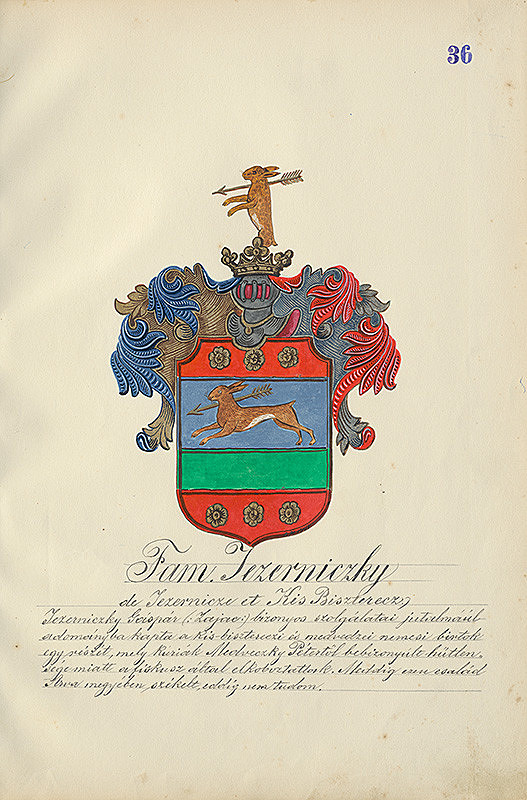 36
Fam. Jezerniczky
de Jezernicze et Kis Biszterecz.
Jezerniczky Gáspár (: Zajac :) bizonyos szolgálatai jutalmául
adományba kapta a Kis-biszterczi és medvedzei nemesi birtok
egy részét, mely Kuriák Medveczky Pétertől bebizonyult hűtlen-
sége miatt a fiskusz által elkoboztattak. Meddig ezen család
Árva megyében székelt, eddig nem tudom.